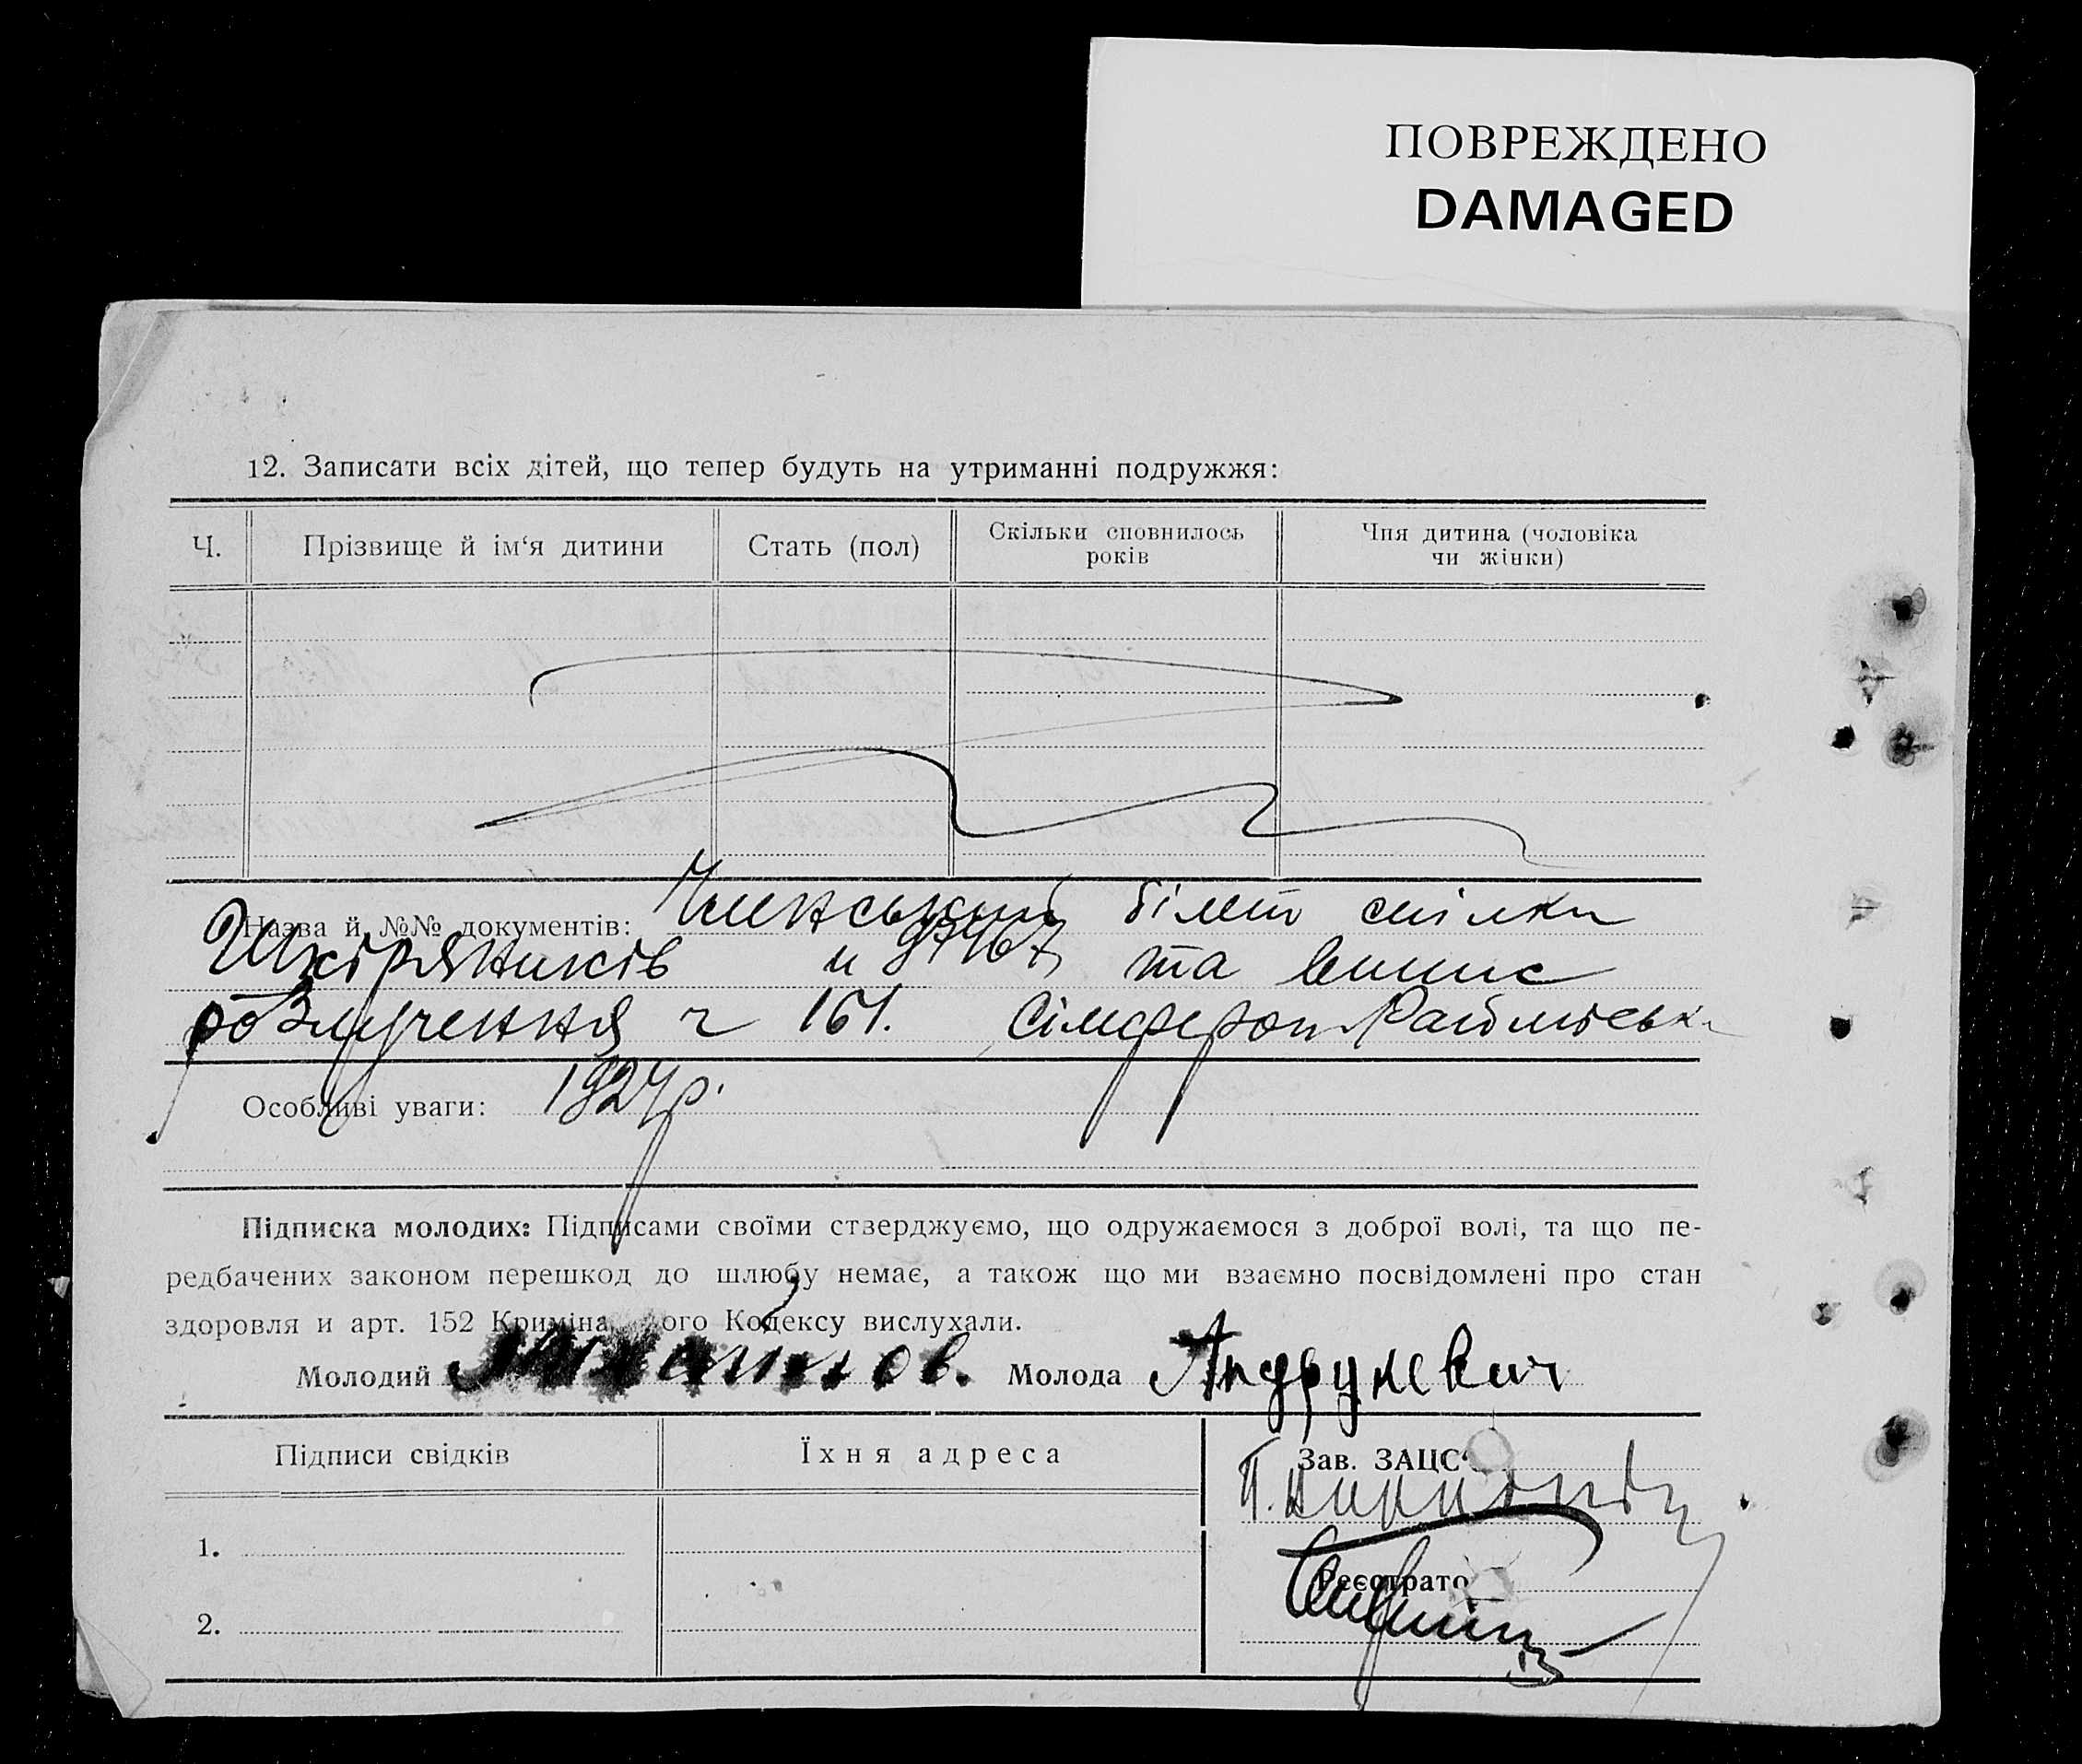 ПОВРЕЖДЕНО
DAMAGED
12. Записати всіх дітей, що тепер будуть на утриманні подружжя:
Ч. Прізвище й ім‘я дитини Стать (пол) Скільки сповнилось років Чия дитина (чоловіка чи жінки)
Назва й №№ документів: Членський білет спілки
Шкіряників н 97467 та випис
розлучення ч 161. Сімфероп Райміськ
Особливі уваги: 1924р.
Підписка молодих: Підписами своїми стверджуємо, що одружаємося з доброї волі, та що пе-
редбачених законом перешкод до шлюбу немає, а також що ми взаємно посвідомлені про стан
здоровля и арт. 152 Криміна ого Кодексу вислухали.
Молодий Михайлов. Молода Андрукевич
Підписи свідків Їхня адреса Зав. ЗАЦС
1.
Реєстрато
2.